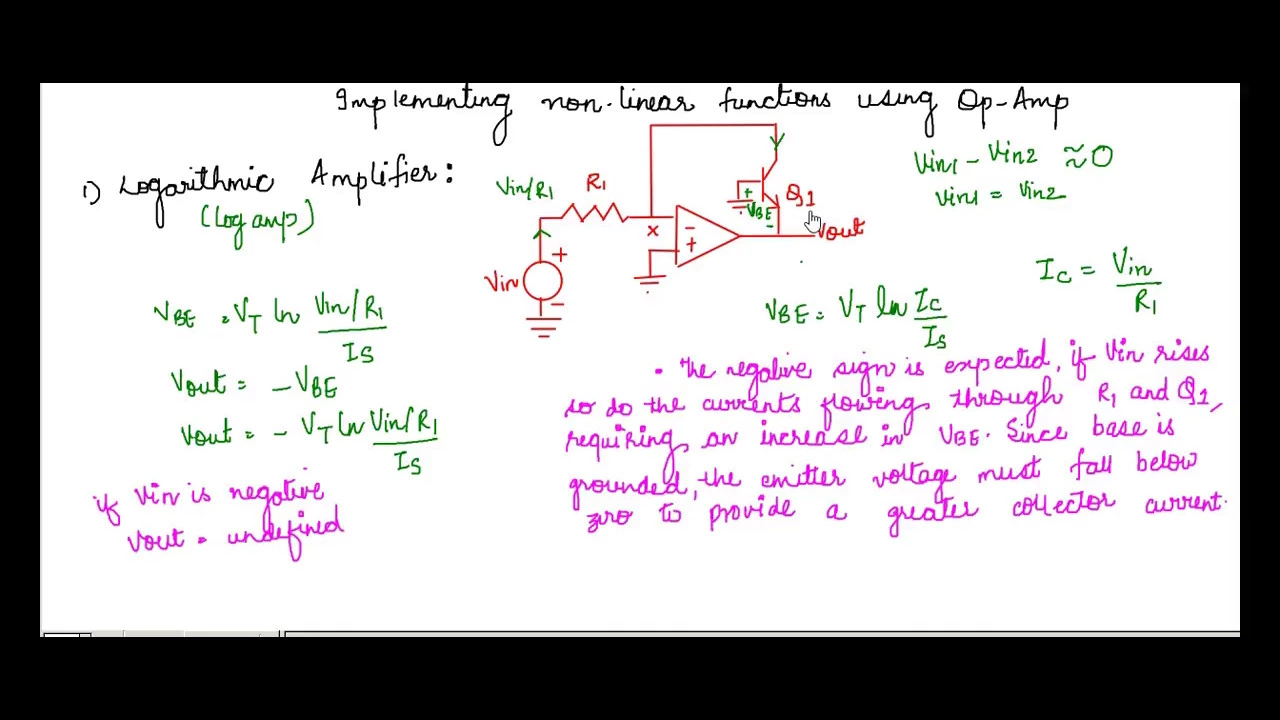 Implementing non-linear functions using Op-Amp
1) Logarithmic Amplifier:
(log amp)
Vin/R1
R1
+
VBE
-
Q1
Vout
X
-
+
Vin
+
-
Vin1 - Vin2 ≈ 0
Vin1 = Vin2
IC = Vin/R1
VBE = VT ln IC/IS
VBE = VT ln (Vin/R1)/IS
Vout = -VBE
Vout = - VT ln (Vin/R1)/IS
if Vin is negative
Vout = undefined
• The negative sign is expected, if Vin rises
so do the currents flowing through R1 and Q1,
requiring an increase in VBE. Since base is
grounded, the emitter voltage must fall below
zero to provide a greater collector current.